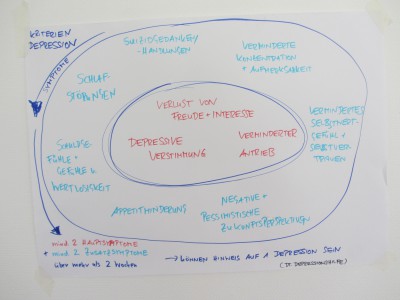 KRITERIEN
DEPRESSION
SYMPTOME
SUIZIDGEDANKEN/
-HANDLUNGEN
VERMINDERTE
KONZENTRATION
+ AUFMERKSAMKEIT
SCHLAF
STÖRUNGEN
VERLUST VON
FREUDE + INTERESSE
DEPRESSIVE
VERSTIMMUNG
VERMINDERTER
ANTRIEB
VERMINDERTES
SELBSTWERT-
GEFÜHL +
SELBSTVER-
TRAUEN
SCHULDGE-
FÜHLE +
GEFÜHLE V.
WERTLOSIGKEIT
APPETITMINDERUNG
NEGATIVE +
PESSIMISTISCHE
ZUKUNFTSPERSPEKTIVEN
mind 2 HAUPTSYMPTOME
+ mind. 2 ZUSATZSYMPTOME
über mehr als 2 Wochen
→ KÖNNEN HINWEIS AUF 1 DEPRESSION SEIN
(DT. DEPRESSIONSHILFE)